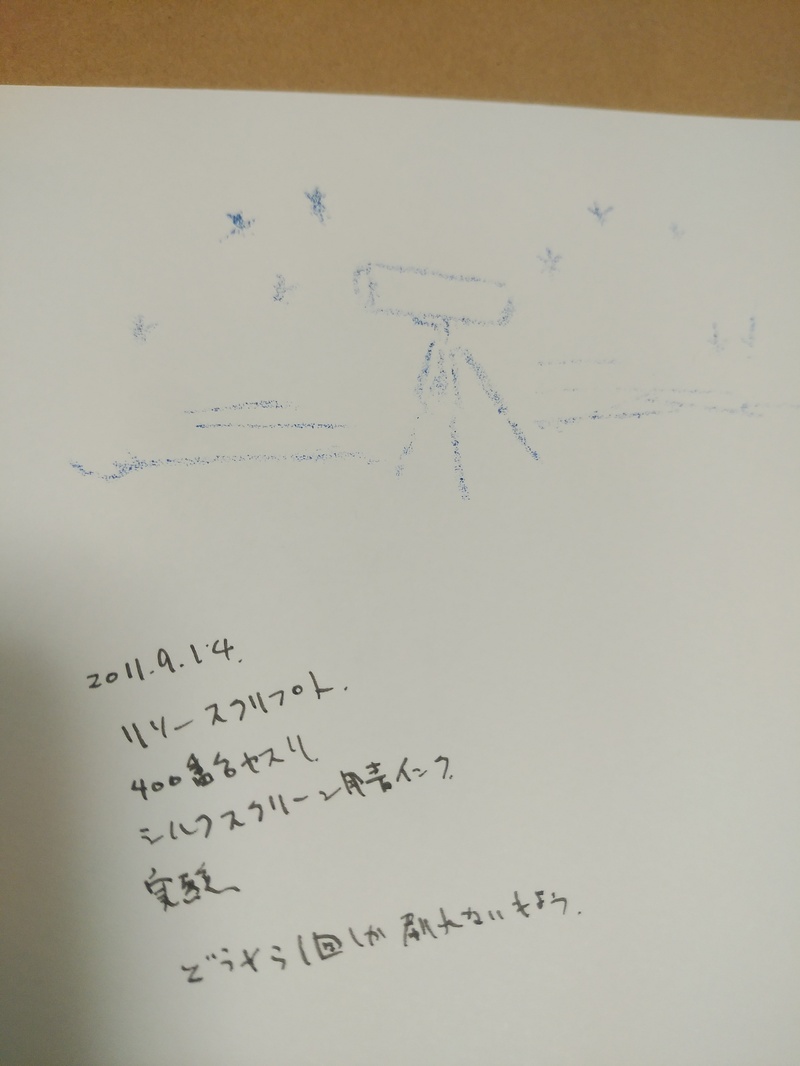 2011.9.14.
リソースクリプト.
400番台ヤスリ.
シルクスクリーン用青インク.
実験
どうやら1回しか刷れないもよう.